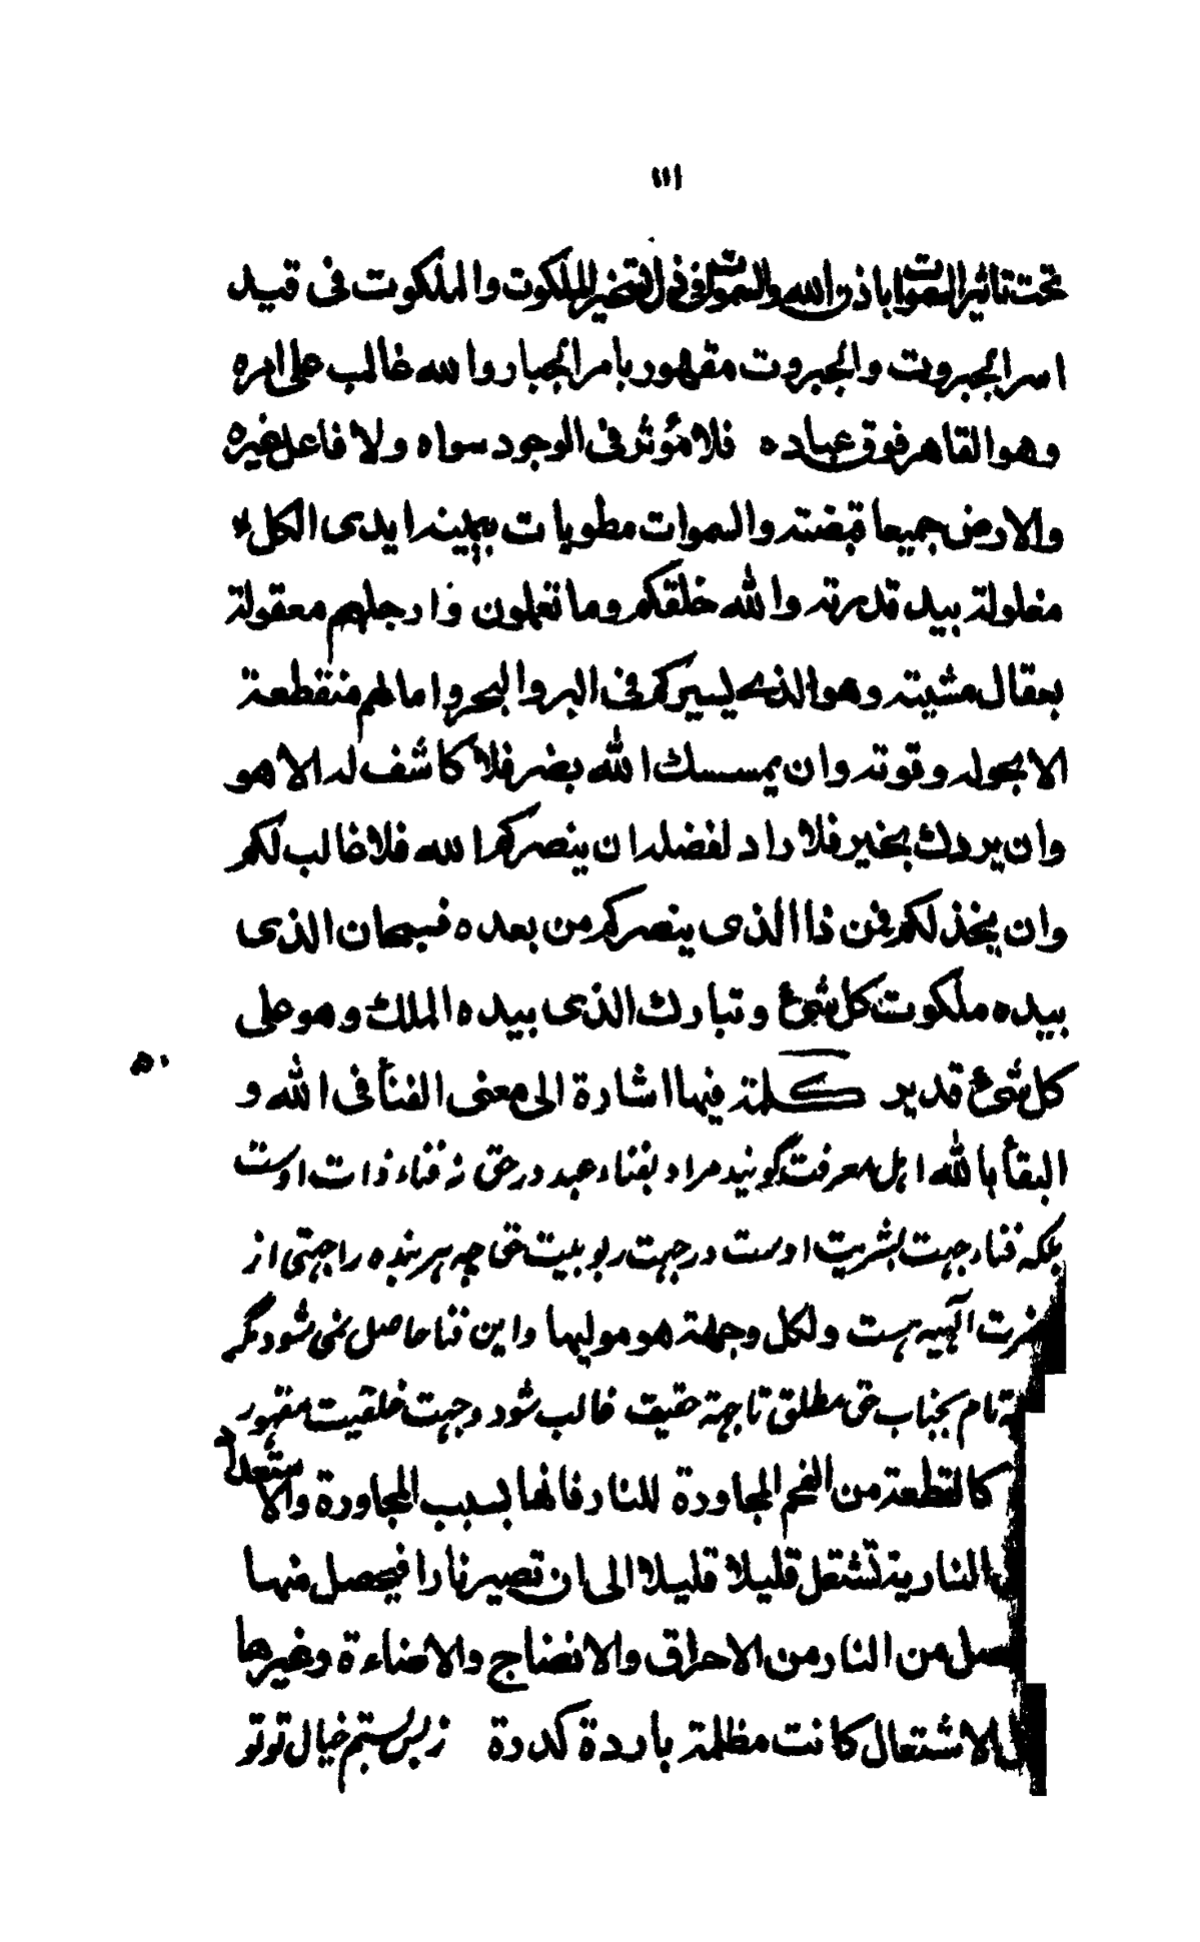 ١١١
تحت تاثير السموات باذن الله والسموات فى ذل التسخير للملكوت والملكوت فى قيد
اسر الجبروت والجبروت مقهور بامر الجبار والله غالب على امره
وهو القاهر فوق عباده فلا مؤثر فى الوجود سواه ولا فاعل غيره
والارض جميعا قبضته والسموات مطويات بيمينه ايدى الكل
مغلولة بيد قدرته والله خلقكم وما تعملون وارجلهم معقولة
بعقال مشيته وهو الذى يسيركم فى البر والبحر واما لهم منقطعة
الا بحوله وقوته وان يمسسك الله بضر فلا كاشف له الا هو
وان يردك بخير فلا راد لفضله ان ينصركم الله فلا غالب لكم
وان يخذلكم فمن ذا الذى ينصركم من بعده فسبحان الذى
بيده ملكوت كل شئ وتبارك الذى بيده الملك وهو على
كل شئ قدير كلمة فيها اشارة الى معنى الفنأ فى الله و
٥٠
البقأ بالله اہل معرفت گویند مراد بفناء عبد در حق نہ فناء ذات اوست
بلکہ فناء جہت بشریت اوست در جہت ربوبیت حق چہ ہر بندہ را جہتی از
حضرت آلہیہ ہست ولكل وجهة هو موليها واین فنا حاصل نمی شود مگر
تام بجناب حق مطلق تا جہة حقیقت غالب شود وجہت خلقیت مقہور
كالقطعة من الفحم المجاورة للنار فانها بسبب المجاورة والاستعداد
النارية تشتعل قليلا قليلا الى ان تصير نارا فيحصل منها
من النار من الاحراق والانضاج والاضاءة وغيرها
الاشتعال كانت مظلمة باردة كدرة زبس بستم خیال تو تو